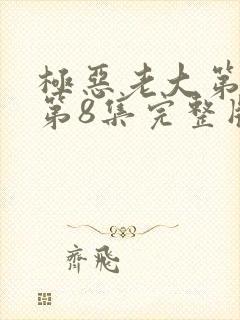 極惡老大第
第8集完整
齊飛